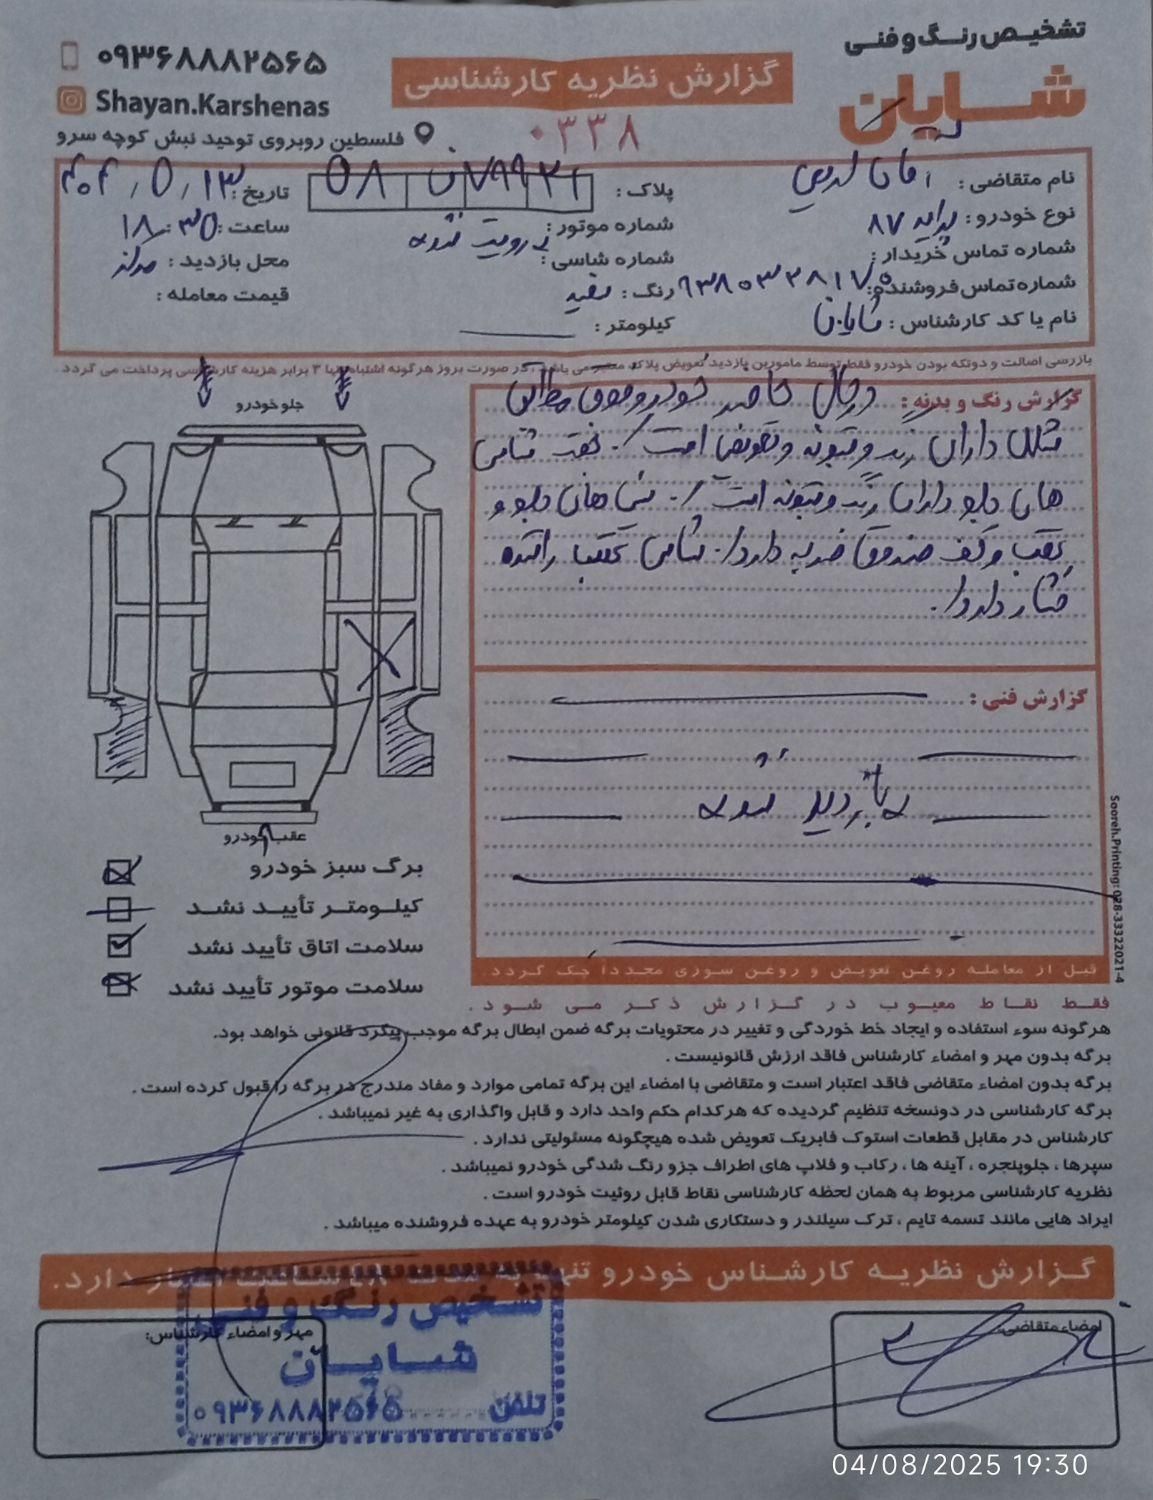 تشخیص رنگ و فنی
شایان
گزارش نظریه کارشناسی
۰۳۳۸
۰۹۳۶۸۸۸۲۵۶۵
Shayan.Karshenas
فلسطین روبروی توحید نبش کوچه سرو
نام متقاضی : آقای
پلاک :
تاریخ : ۴۰۴/۵/۱۳
نوع خودرو : پراید ۸۷
شماره موتور :
ساعت : ۱۸:۳۵
شماره تماس خریدار :
شماره شاسی : رویت نشده
محل بازدید : مرکز
شماره تماس فروشنده :
رنگ : سفید
قیمت معامله :
نام یا کد کارشناس : شایان
کیلومتر :
بازرسی اصالت و دوتکه بودن خودرو فقط توسط مامورین بازدید تعویض پلاک معتبر می باشد ، در صورت بروز هرگونه اشتباه تنها ۳ برابر هزینه کارشناسی پرداخت می گردد
جلو خودرو
عقب خودرو
گزارش رنگ و بدنه : درحال حاضر خودرو فوق مطابق
شکل دارای رنگ و بتونه و تعویض است ./ جفت شاسی
های جلو دارای رنگ و بتونه است ./ سینی های جلو و
عقب و کف صندوق ضربه دارد ./ شاسی عقب راننده
فشار دارد ./
گزارش فنی :
بازدید نشده
قبل از معامله روغن تعویض و روغن سوزی مجدداً چک گردد
برگ سبز خودرو
کیلومتر تأیید نشد
سلامت اتاق تأیید نشد
سلامت موتور تأیید نشد
Sooreh.Printing: 028-33322021-4
فقط نقاط معیوب در گزارش ذکر می شود .
هرگونه سوء استفاده و ایجاد خط خوردگی و تغییر در محتویات برگه ضمن ابطال برگه موجب پیگرد قانونی خواهد بود.
برگه بدون مهر و امضاء کارشناس فاقد ارزش قانونیست .
برگه بدون امضاء متقاضی فاقد اعتبار است و متقاضی با امضاء این برگه تمامی موارد و مفاد مندرج در برگه را قبول کرده است .
برگه کارشناسی در دونسخه تنظیم گردیده که هرکدام حکم واحد دارد و قابل واگذاری به غیر نمیباشد .
کارشناس در مقابل قطعات استوک فابریک تعویض شده هیچگونه مسئولیتی ندارد .
سپرها ، جلوپنجره ، آینه ها ، رکاب و فلاپ های اطراف جزو رنگ شدگی خودرو نمیباشد .
نظریه کارشناسی مربوط به همان لحظه کارشناسی نقاط قابل روئیت خودرو است .
ایراد هایی مانند تسمه تایم ، ترک سیلندر و دستکاری شدن کیلومتر خودرو به عهده فروشنده میباشد .
گزارش نظریه کارشناس خودرو تنها به مدت ۴۸ ساعت اعتبار دارد.
امضاء متقاضی:
مهر و امضاء کارشناس:
تشخیص رنگ و فنی
شایان
تلفن ۰۹۳۶۸۸۸۲۵۶۵
04/08/2025 19:30